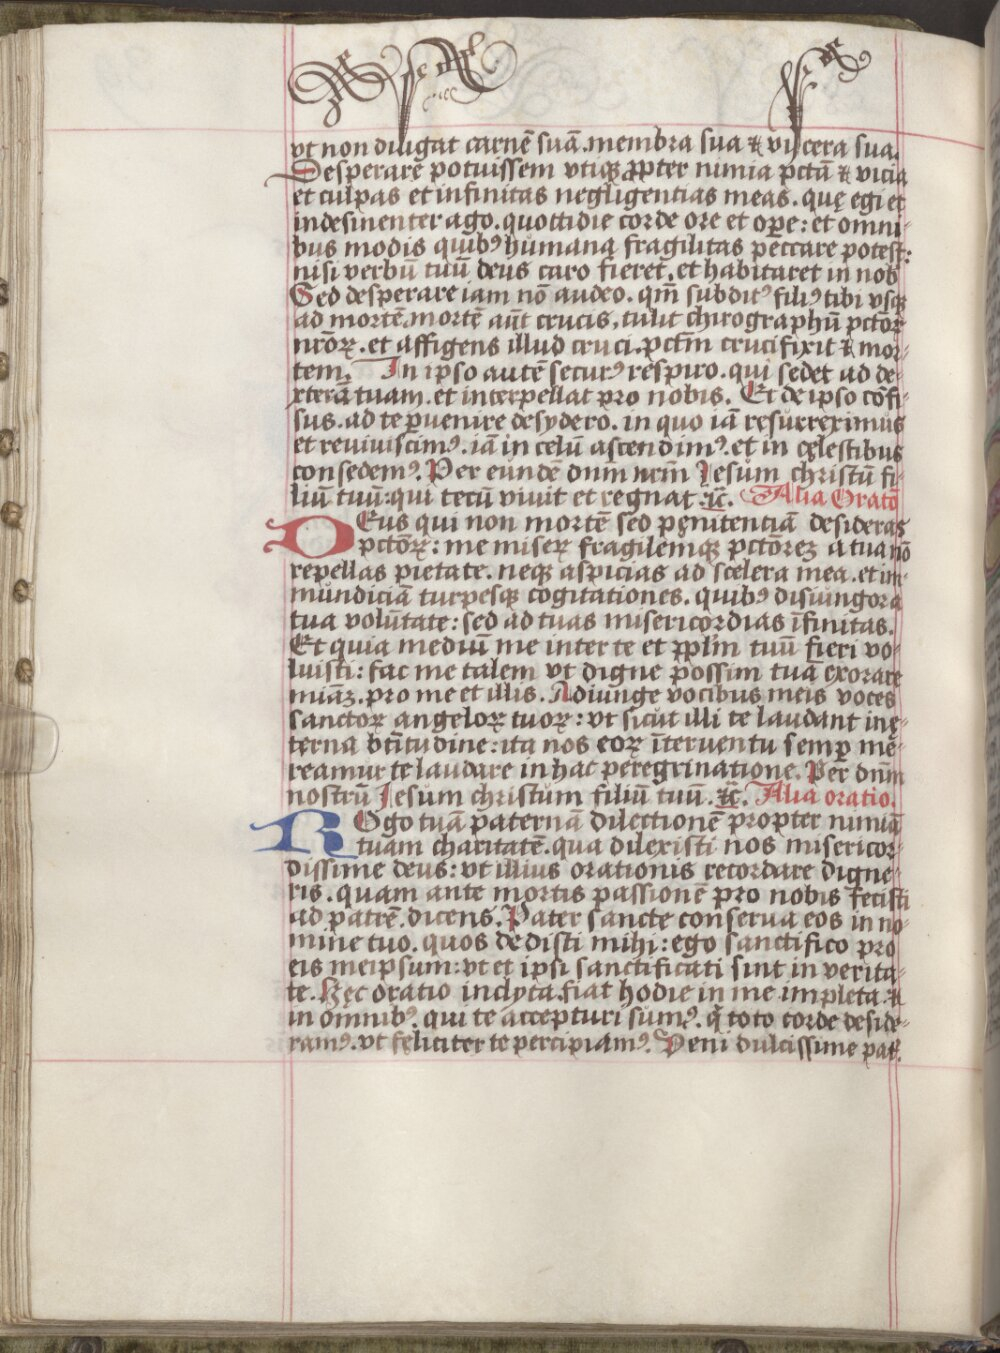 vt non diligat carnē suā. membra sua & viscera sua.
Desperare potuissem vtiqꝫ ꝓpter nimia pctā & vicia
et culpas et infinitas negligentias meas. quę egi et
indesinenter ago. quottidie corde ore et oꝑe: et omni-
bus modis quibꝰ humana fragilitas peccare potest:
nisi verbū tuū deus caro fieret, et habitaret in nob
Sed desperare iam nō audeo. qm̄ subditꝰ filiꝰ tibi vsqꝫ
ad mortē. mortē aūt crucis, tulit chirographū pctōꝝ
nr̄oꝝ. et affigens illud cruci. pctm̄ crucifixit & mor-
tem. In ipso autē securꝰ respiro. qui sedet ad de-
xterā tuam. et interpellat pro nobis. Et de ipso cōfi-
sus. ad te ꝑuenire desydero. in quo iā resurreximus
et reviuiscimꝰ. iā in celū ascendimꝰ. et in cęlestibus
consedemꝰ. Per eundē dnm̄ nr̄m Iesum christū fi-
liū tuū: qui tecū viuit et regnat. ⁊c̄. Alia Oratō
DEus qui non mortē sed pęnitentiā desideras
pctōꝝ: me miseꝝ fragilemqꝫ pctōreꝫ a tua nō
repellas pietate. neqꝫ aspicias ad scelera mea. et im-
mundiciā turpesqꝫ cogitationes. quibꝰ disiungor a
tua volūtate: sed ad tuas misericordias īfinitas.
Et quia mediū me inter te et ꝓplm̄ tuū fieri vo-
luisti: fac me talem vt digne possim tuā exorare
miāꝫ. pro me et illis. Adiunge vocibus meis voces
sanctoꝝ angeloꝝ tuoꝝ: vt sicut illi te laudant in ę-
terna btītudine: ita nos eoꝝ īteruentu semꝑ me-
reamur te laudare in hac peregrinatione. Per dnm̄
nostrū Iesum christum filiū tuū. ⁊c̄. Alia oratio.
ROgo tuā paternā dilectionē propter nimiā
tuam charitatē. qua dilexisti nos misericor-
dissime deus: vt illius orationis recordare digne-
ris. quam ante mortis passionē pro nobis fecisti
ad patrē. dicens. Pater sancte conserua eos in no-
mine tuo. quos dedisti mihi: ego sanctifico pro
eis meipsum: vt et ipsi sanctificati sint in verita-
te. Hęc oratio inclyta. fiat hodie in me impleta. &
in omnibꝰ. qui te accepturi sumꝰ. q̄ toto corde deside-
ramꝰ. vt fęliciter te percipiamꝰ. Veni dulcissime pat̄.